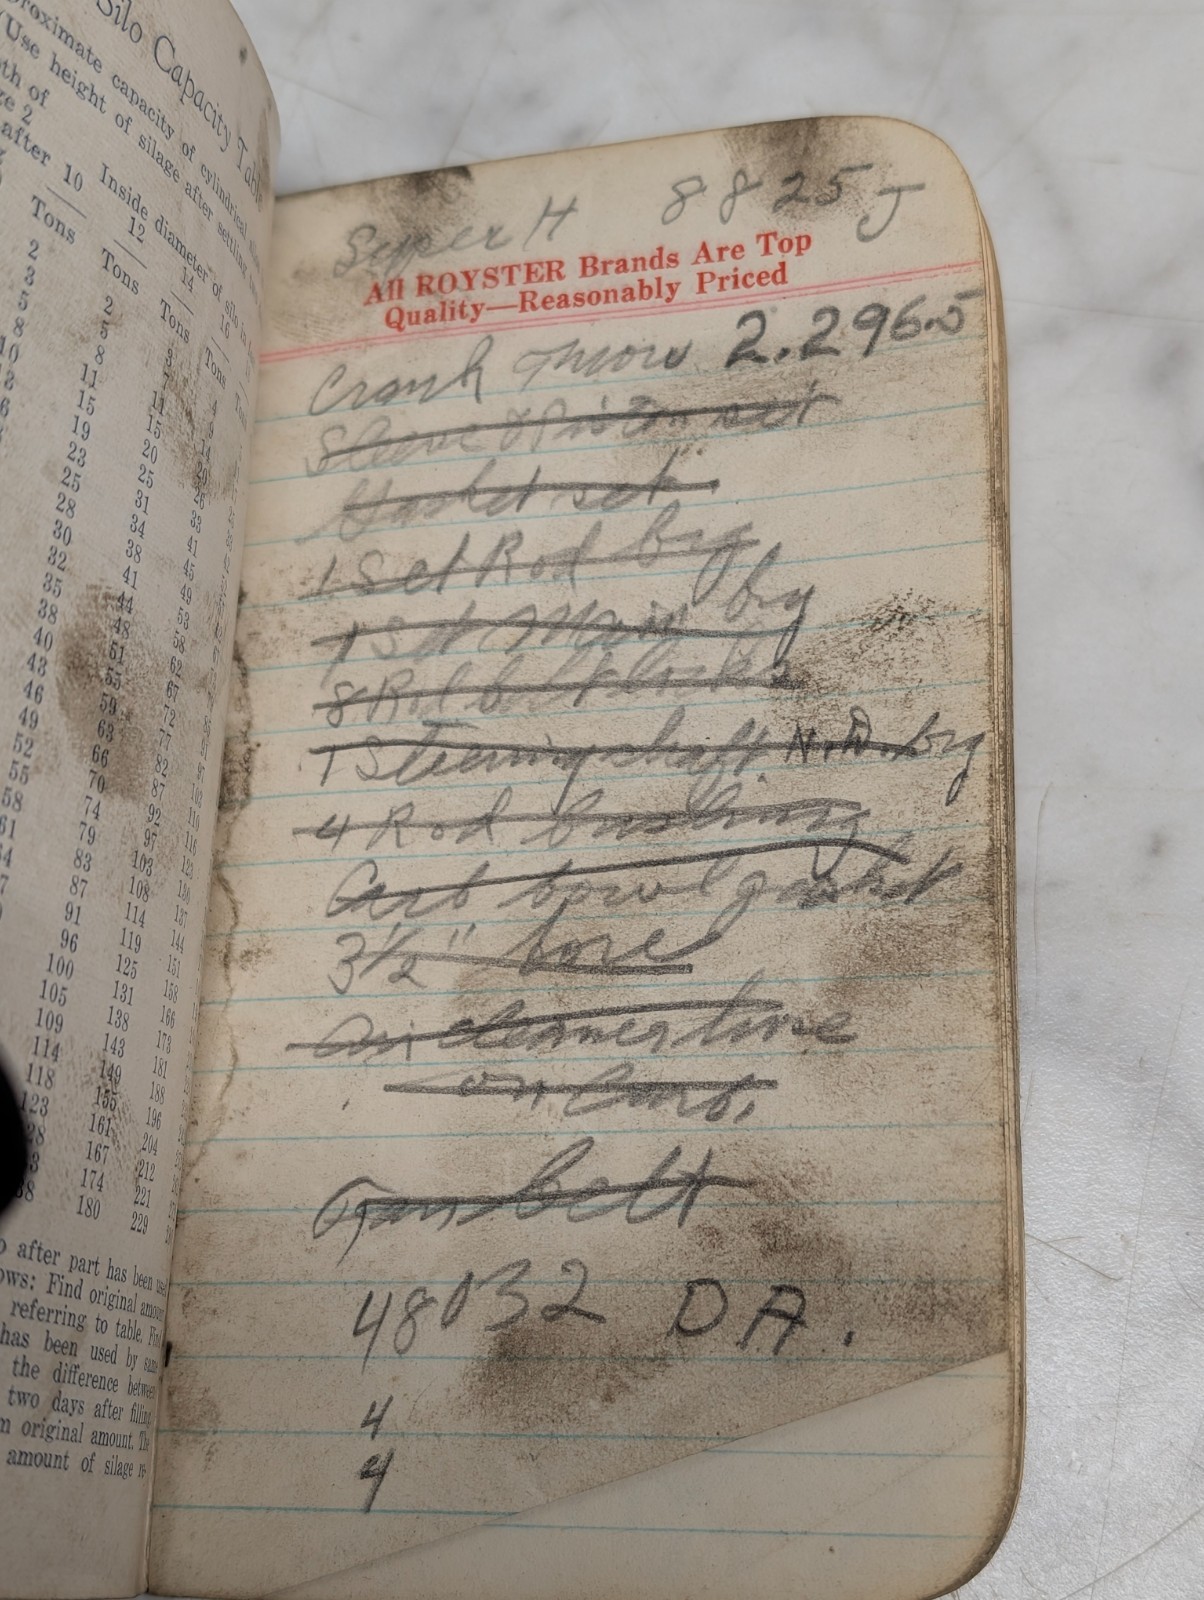 Silo Capacity Table
proximate capacity of cylindrical
(Use height of silage after settling
Inside diameter of silo in
after 10 12 14 16
Tons Tons Tons Tons
2 2 3 4
3 5 7 9
5 8 11 14
8 11 15 20
10 15 20 26
19 25 33
23 31 41
25 34 45
28 38 49
30 41 53
32 44 58
35 48 62
38 51 67
40 55 72
43 59 77
46 63 82
49 66 87
52 70 92
55 74 97
58 79 103
61 83 108
87 114
91 119
96 125
100 131
105 138
109 143
114 149
118 155
123 161
167
174
180
after part has been used
ows: Find original amount
referring to table. Find
has been used by same
the difference between
two days after filling
original amount. The
amount of silage re-
Super H 8825 J
All ROYSTER Brands Are Top
Quality—Reasonably Priced
Crank throw 2.2965
Sleeve & Piston set
Gasket set
1 Set Rod brg
1 Set Main brg
8 Rod bolt locks
1 Steering shaft N.D. brg
4 Rod bushing
Carb bowl gasket
3 1/2" bore
Air cleaner hose
on Carb.
Fan belt
48032 DA.
4
4